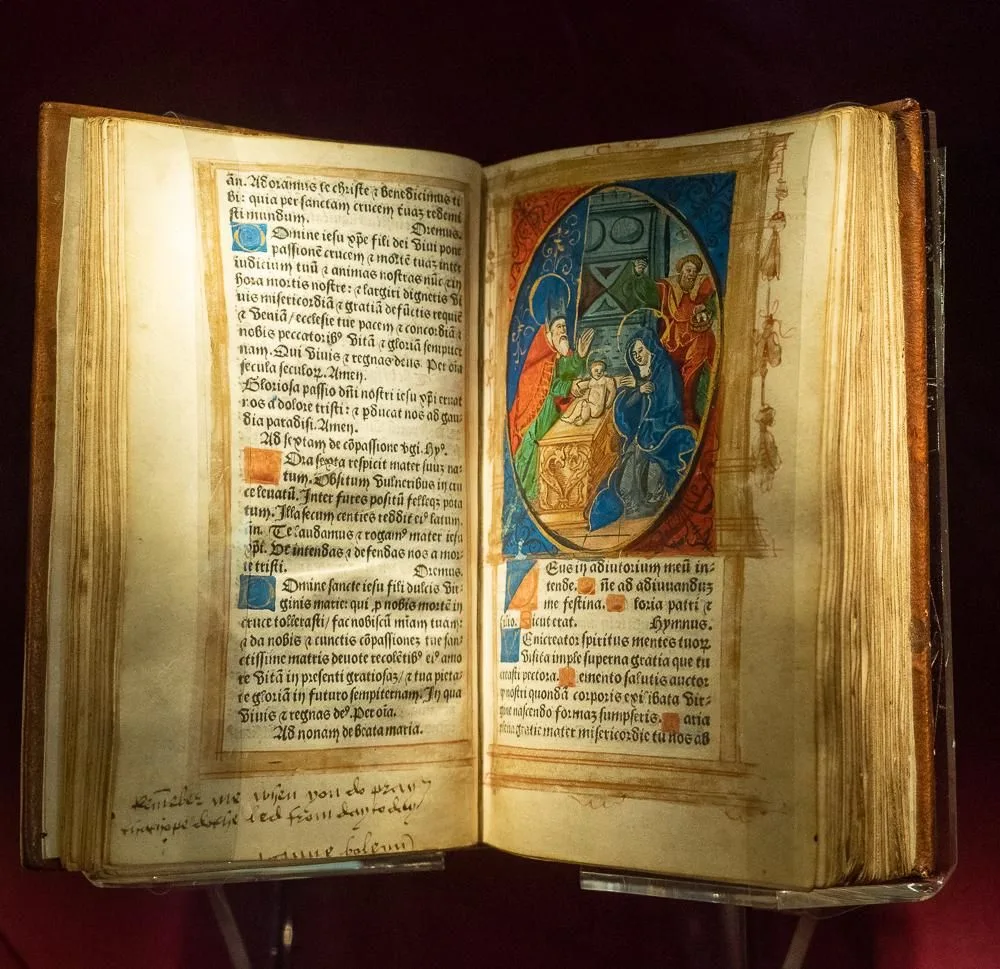 añ. Adoramus te christe ⁊ benedicimus ti
bi: quia per sanctam crucem tuaʒ redemi
sti mundum. Oremus.
Omine iesu xp̄e fili dei viui pone
passionē crucem ⁊ mortē tuaʒ inter
iudicium tuū ⁊ animas nostras nūc ⁊ in
hora mortis nostre: ⁊ largiri digneris vi
uis misericordiā ⁊ gratiā defūctis requiē
⁊ veniā/ ecclesie tue pacem ⁊ concordiā ⁊
nobis peccatorib⁹ vitā ⁊ gloriā sempiter
nam. Qui viuis ⁊ regnas deus. Per oīa
secula seculoꝝ. Amen.
Gloriosa passio dn̄i nostri iesu xp̄i eruat
nos a dolore tristi: ⁊ ꝑducat nos ad gau
dia paradisi. Amen.
Ad sextam de cōpassione vgi. Hy⁹.
Ora sexta respicit mater suuʒ na
tum. Obsitum vulneribus in cru
ce leuatū. Inter fures positū felleqʒ pota
tum. Illa secum centies reddit ei⁹ latum.
añ. Te laudamus ⁊ rogam⁹ mater iesu
xp̄i. Vt intendas ⁊ defendas nos a mor
te tristi. Oremus.
Omine sancte iesu fili dulcis vir
ginis marie: qui ꝓ nobis mortē in
cruce tollerasti/ fac nobiscū miam tuam:
⁊ da nobis ⁊ cunctis cōpassioneʒ tue san
ctissime matris deuote recolētib⁹ ei⁹ amo
re vitā in presenti gratiosaʒ/ ⁊ tua pieta
te gloriā in futuro sempiternam. In qua
viuis ⁊ regnas de⁹. Per oīa.
Ad nonam de beata maria.
remēber me when you do pray
hope dothe led from day to day
anne boleyn
Eus in adiutorium meū in-
tende. ne ad adiuuanduʒ
me festina. loria patri ⁊
filio. icut erat. Hymnus.
Eni creator spiritus mentes tuoꝝ
visita imple superna gratia que tu
creasti pectora. emento salutis auctor
ꝙ nostri quondā corporis ex illibata vir-
gine nascendo formaʒ sumpseris. aria
plena gratie mater misericordie tu nos ab